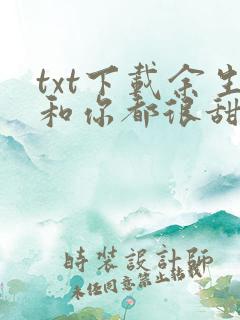 txt下载余生
和你都很甜
時裝設計師
未任同意禁止转载